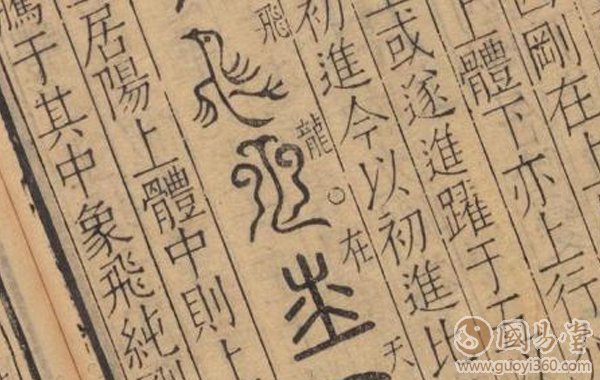 剛在上
體下亦上行
或遂進躍于
初進今以初進比
飛龍。在天
居陽上體中則上
騰于其中象飛純
國易堂
www.guoyi360.com